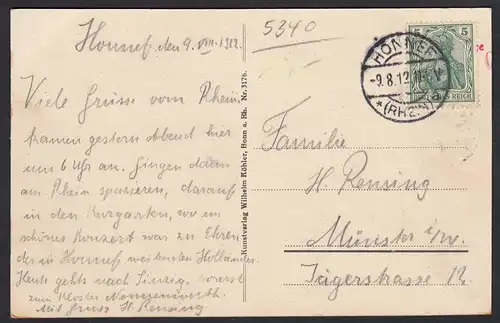 Honnef, den 9. VIII. 1912.
5340
Viele Grüsse vom Rhein,
kamen gestern Abend hier
um 6 Uhr an. Gingen dann
am Rhein spazieren, darauf
in den Kurgarten, wo ein
schönes Konzert war zu Ehren
der in Honnef weilenden Holländer.
Heute gehts nach Sinzig, vorerst
zum Kloster Nonnenwerth.
Mit Gruss H. Rensing
Kunstverlag Wilhelm Köhler, Bonn a. Rh. Nr. 3176.
5
REICH
HONNEF
-9.8.12
* (RHEIN)
Familie
H. Rensing
Münster i/W.
Jägerstrasse 12